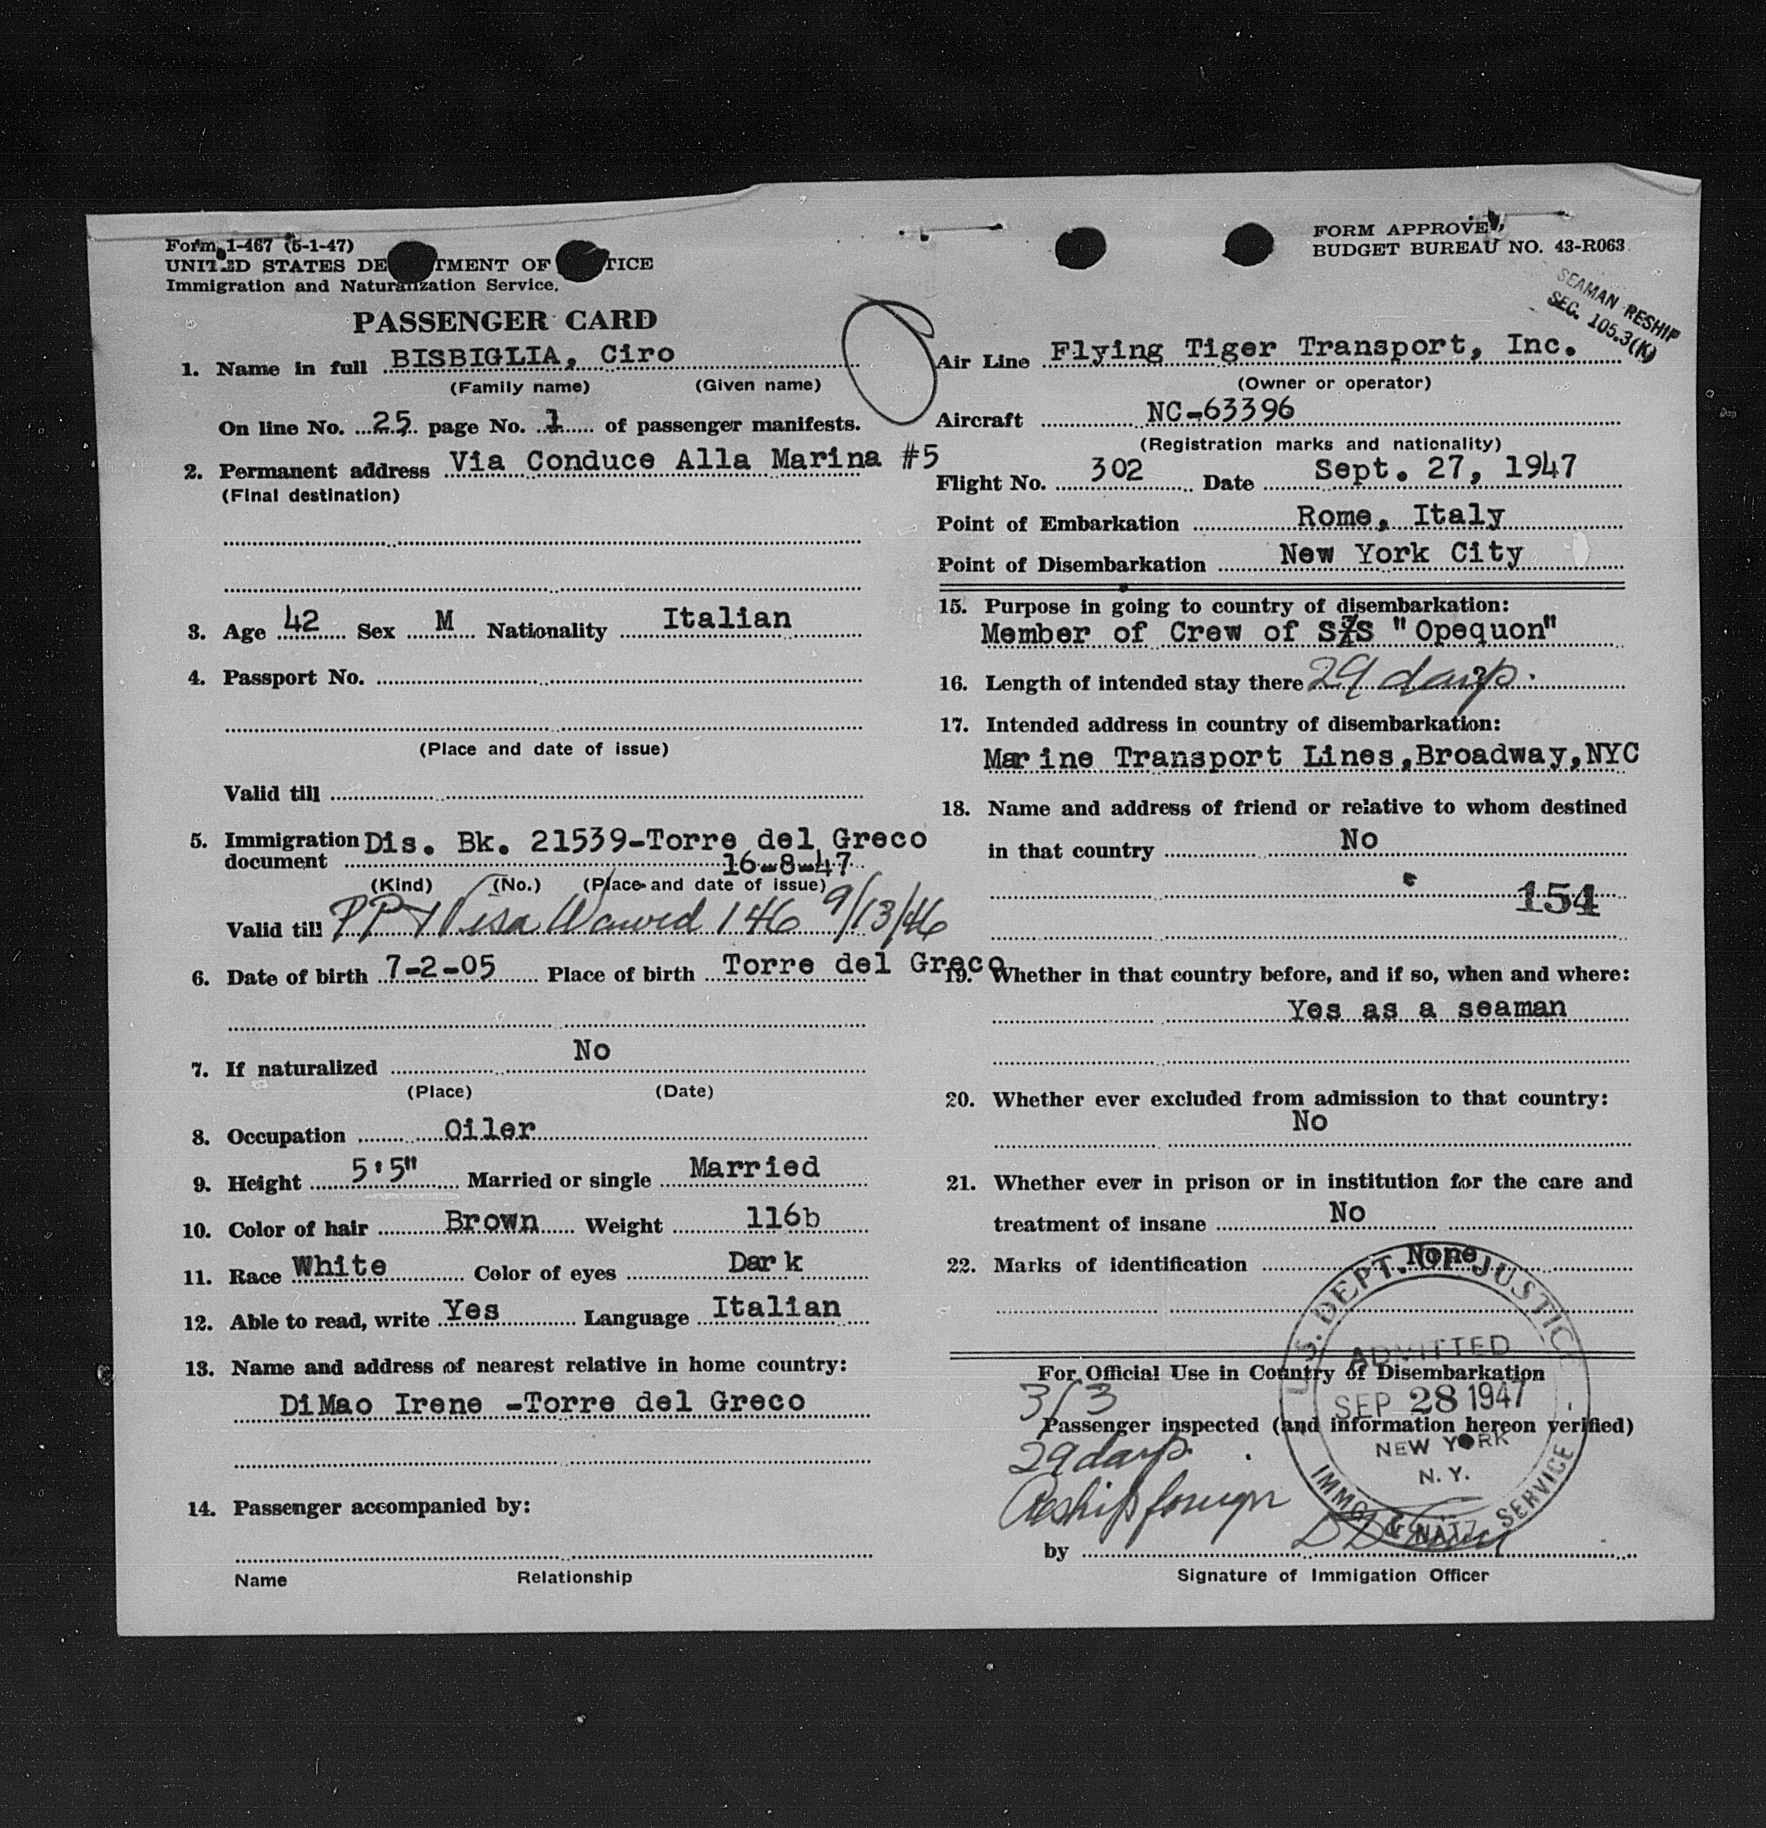 Form 1-467 (5-1-47)
UNITED STATES DE TMENT OF TICE
Immigration and Naturalization Service.
PASSENGER CARD
1. Name in full BISBIGLIA, Ciro
(Family name) (Given name)
On line No. 25 page No. 1 of passenger manifests.
2. Permanent address Via Conduce Alla Marina #5
(Final destination)
3. Age 42 Sex M Nationality Italian
4. Passport No.
(Place and date of issue)
Valid till
5. Immigration Dis. Bk. 21539-Torre del Greco
document 16-8-47
(Kind) (No.) (Place and date of issue)
Valid till PPT Visa Waived 146 9/13/46
6. Date of birth 7-2-05 Place of birth Torre del Greco
7. If naturalized No
(Place) (Date)
8. Occupation Oiler
9. Height 5'5" Married or single Married
10. Color of hair Brown Weight 116b
11. Race White Color of eyes Dark
12. Able to read, write Yes Language Italian
13. Name and address of nearest relative in home country:
DiMao Irene -Torre del Greco
14. Passenger accompanied by:
Name Relationship
FORM APPROVE
BUDGET BUREAU NO. 43-R063
SEAMAN RESHIP
SEC. 105.3(K)
Air Line Flying Tiger Transport, Inc.
(Owner or operator)
Aircraft NC-63396
(Registration marks and nationality)
Flight No. 302 Date Sept. 27, 1947
Point of Embarkation Rome, Italy
Point of Disembarkation New York City
15. Purpose in going to country of disembarkation:
Member of Crew of S/S "Opequon"
16. Length of intended stay there 29 days.
17. Intended address in country of disembarkation:
Marine Transport Lines,Broadway,NYC
18. Name and address of friend or relative to whom destined
in that country No
154
19. Whether in that country before, and if so, when and where:
Yes as a seaman
20. Whether ever excluded from admission to that country:
No
21. Whether ever in prison or in institution for the care and
treatment of insane No
22. Marks of identification None
For Official Use in Country of Disembarkation
3/3
Passenger inspected (and information hereon verified)
29 days
Reship foreign
by
Signature of Immigation Officer
U.S. DEPT. OF JUSTICE
ADMITTED
SEP 28 1947
NEW YORK
N. Y.
IMMG. & NATZ. SERVICE